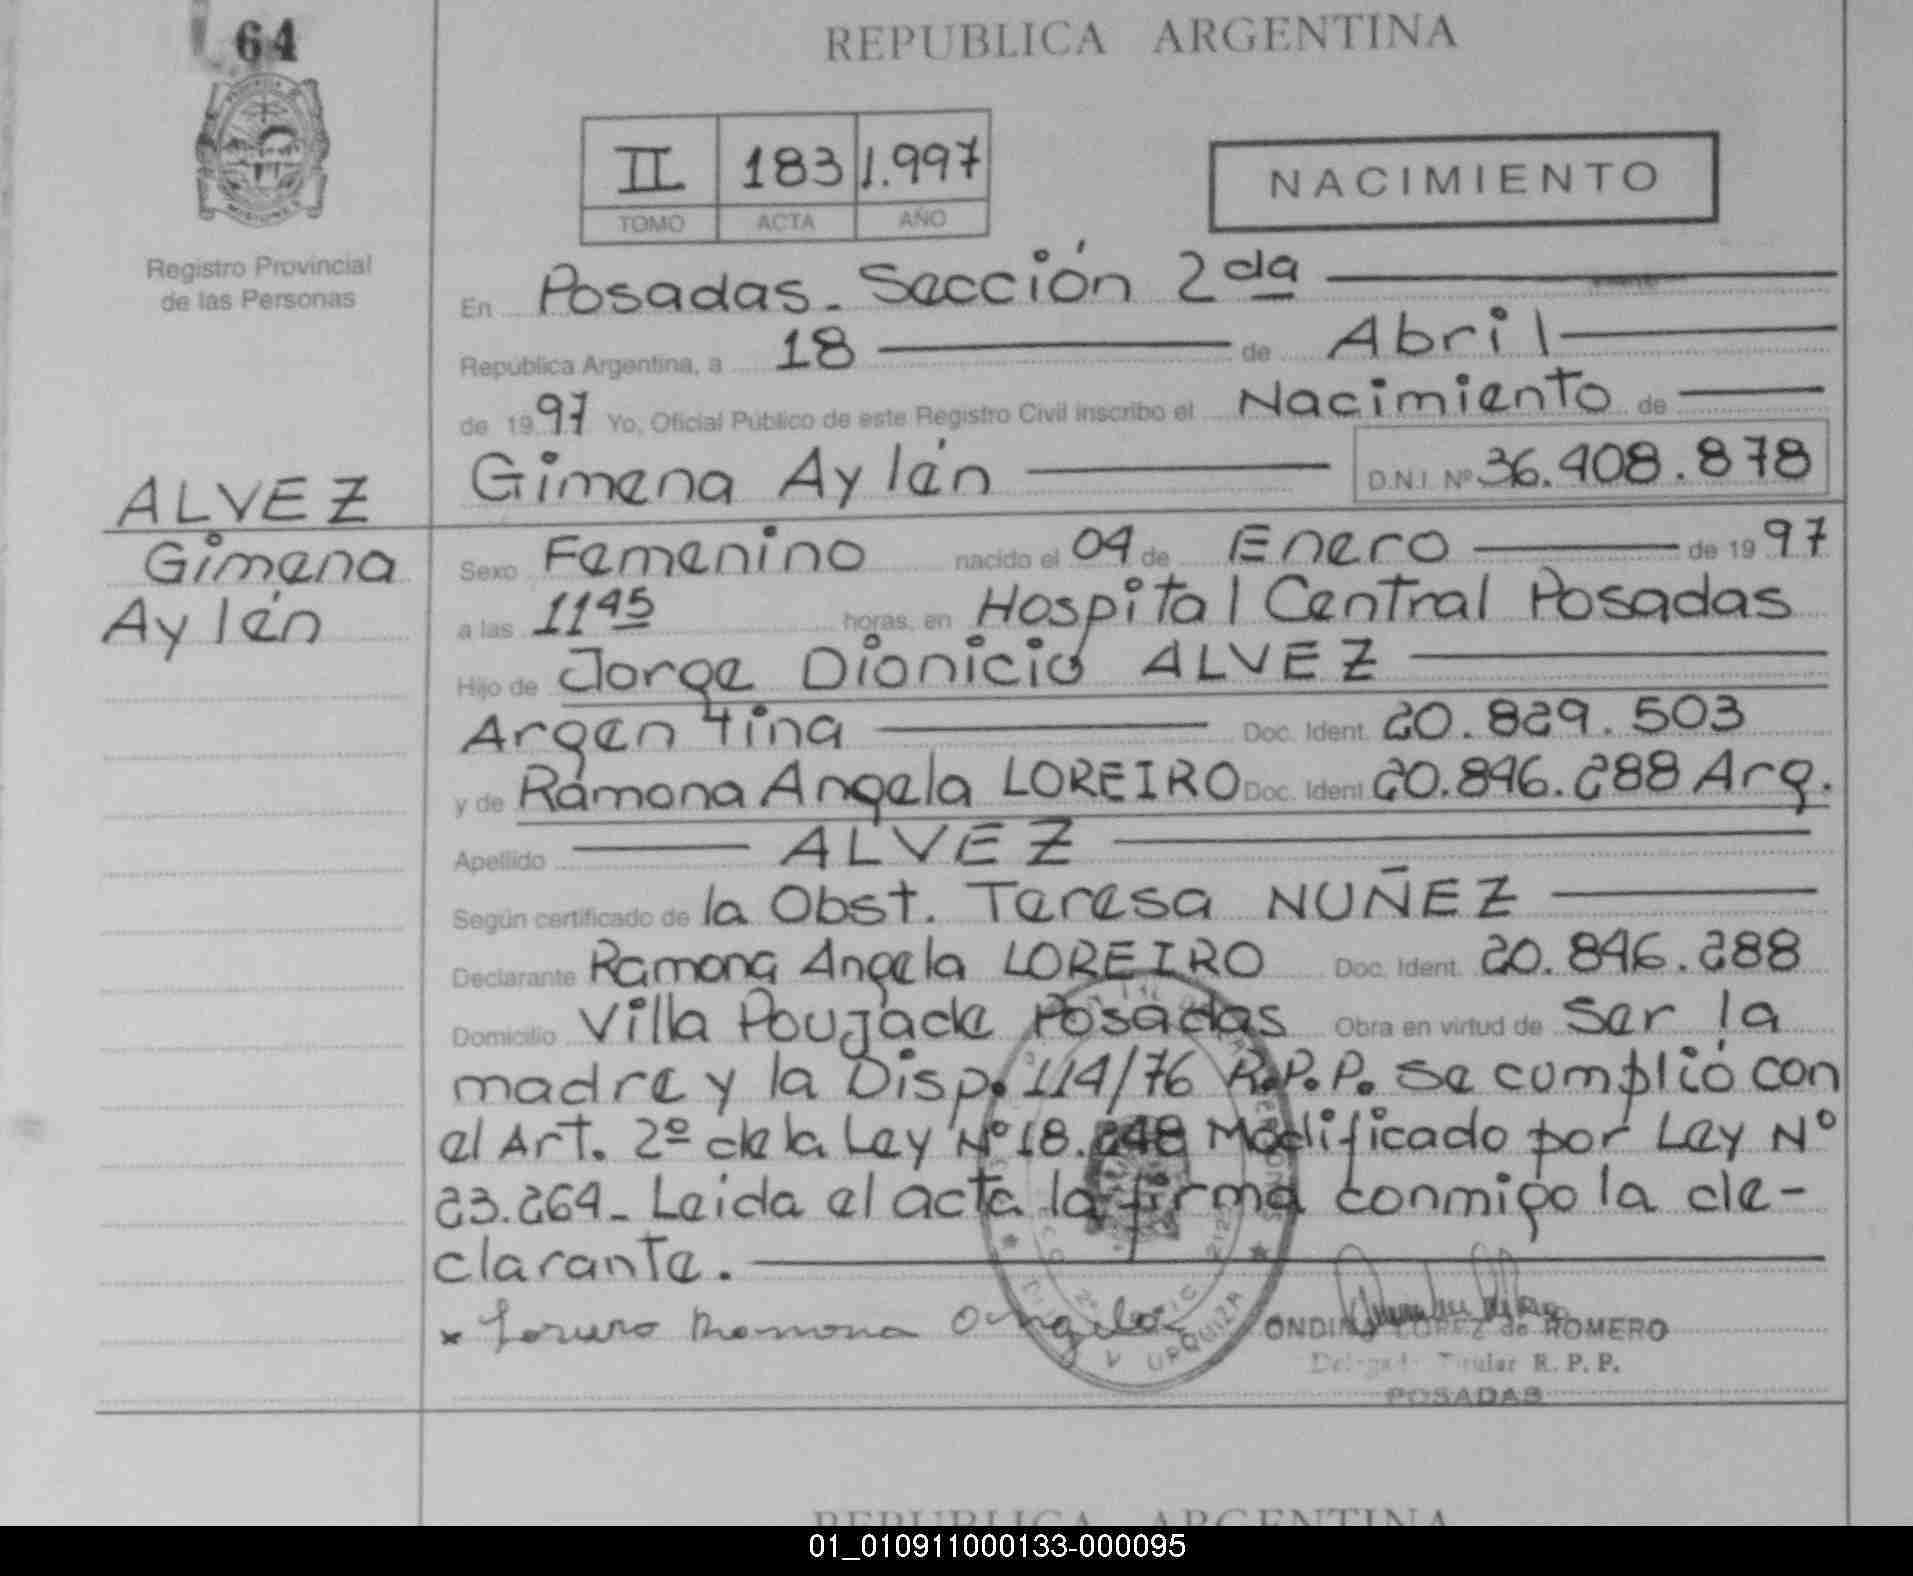 64
REPUBLICA ARGENTINA
II 183 1.997
TOMO ACTA AÑO
NACIMIENTO
Registro Provincial
de las Personas
En Posadas. Sección 2da
República Argentina, a 18 de Abril
de 1997 Yo, Oficial Público de este Registro Civil inscribo el Nacimiento de
Gimena Aylén D.N.I. Nº 36.408.878
ALVEZ
Gimena
Aylén
Sexo Femenino nacido el 04 de Enero de 1997
a las 11 45 horas, en Hospital Central Posadas
Hijo de Jorge Dionicio ALVEZ
Argentina Doc. Ident. 20.829.503
y de Ramona Angela LOREIRO Doc. Ident 20.846.288 Arg.
Apellido ALVEZ
Según certificado de la Obst. Teresa NUÑEZ
Declarante Ramona Angela LOREIRO Doc. Ident. 20.846.288
Domicilio Villa Poujade Posadas Obra en virtud de ser la
madre y la Disp. 114/76 R.P.P. se cumplió con
el Art. 2º de la Ley Nº 18.248 Modificado por Ley Nº
23.264- Leida el acta la firma conmigo la de-
clarante.
x Ramona Angela
URQUIZA
LOPEZ de ROMERO
Titular R. P. P.
POSADAS
REPUBLICA ARGENTINA
01_010911000133-000095